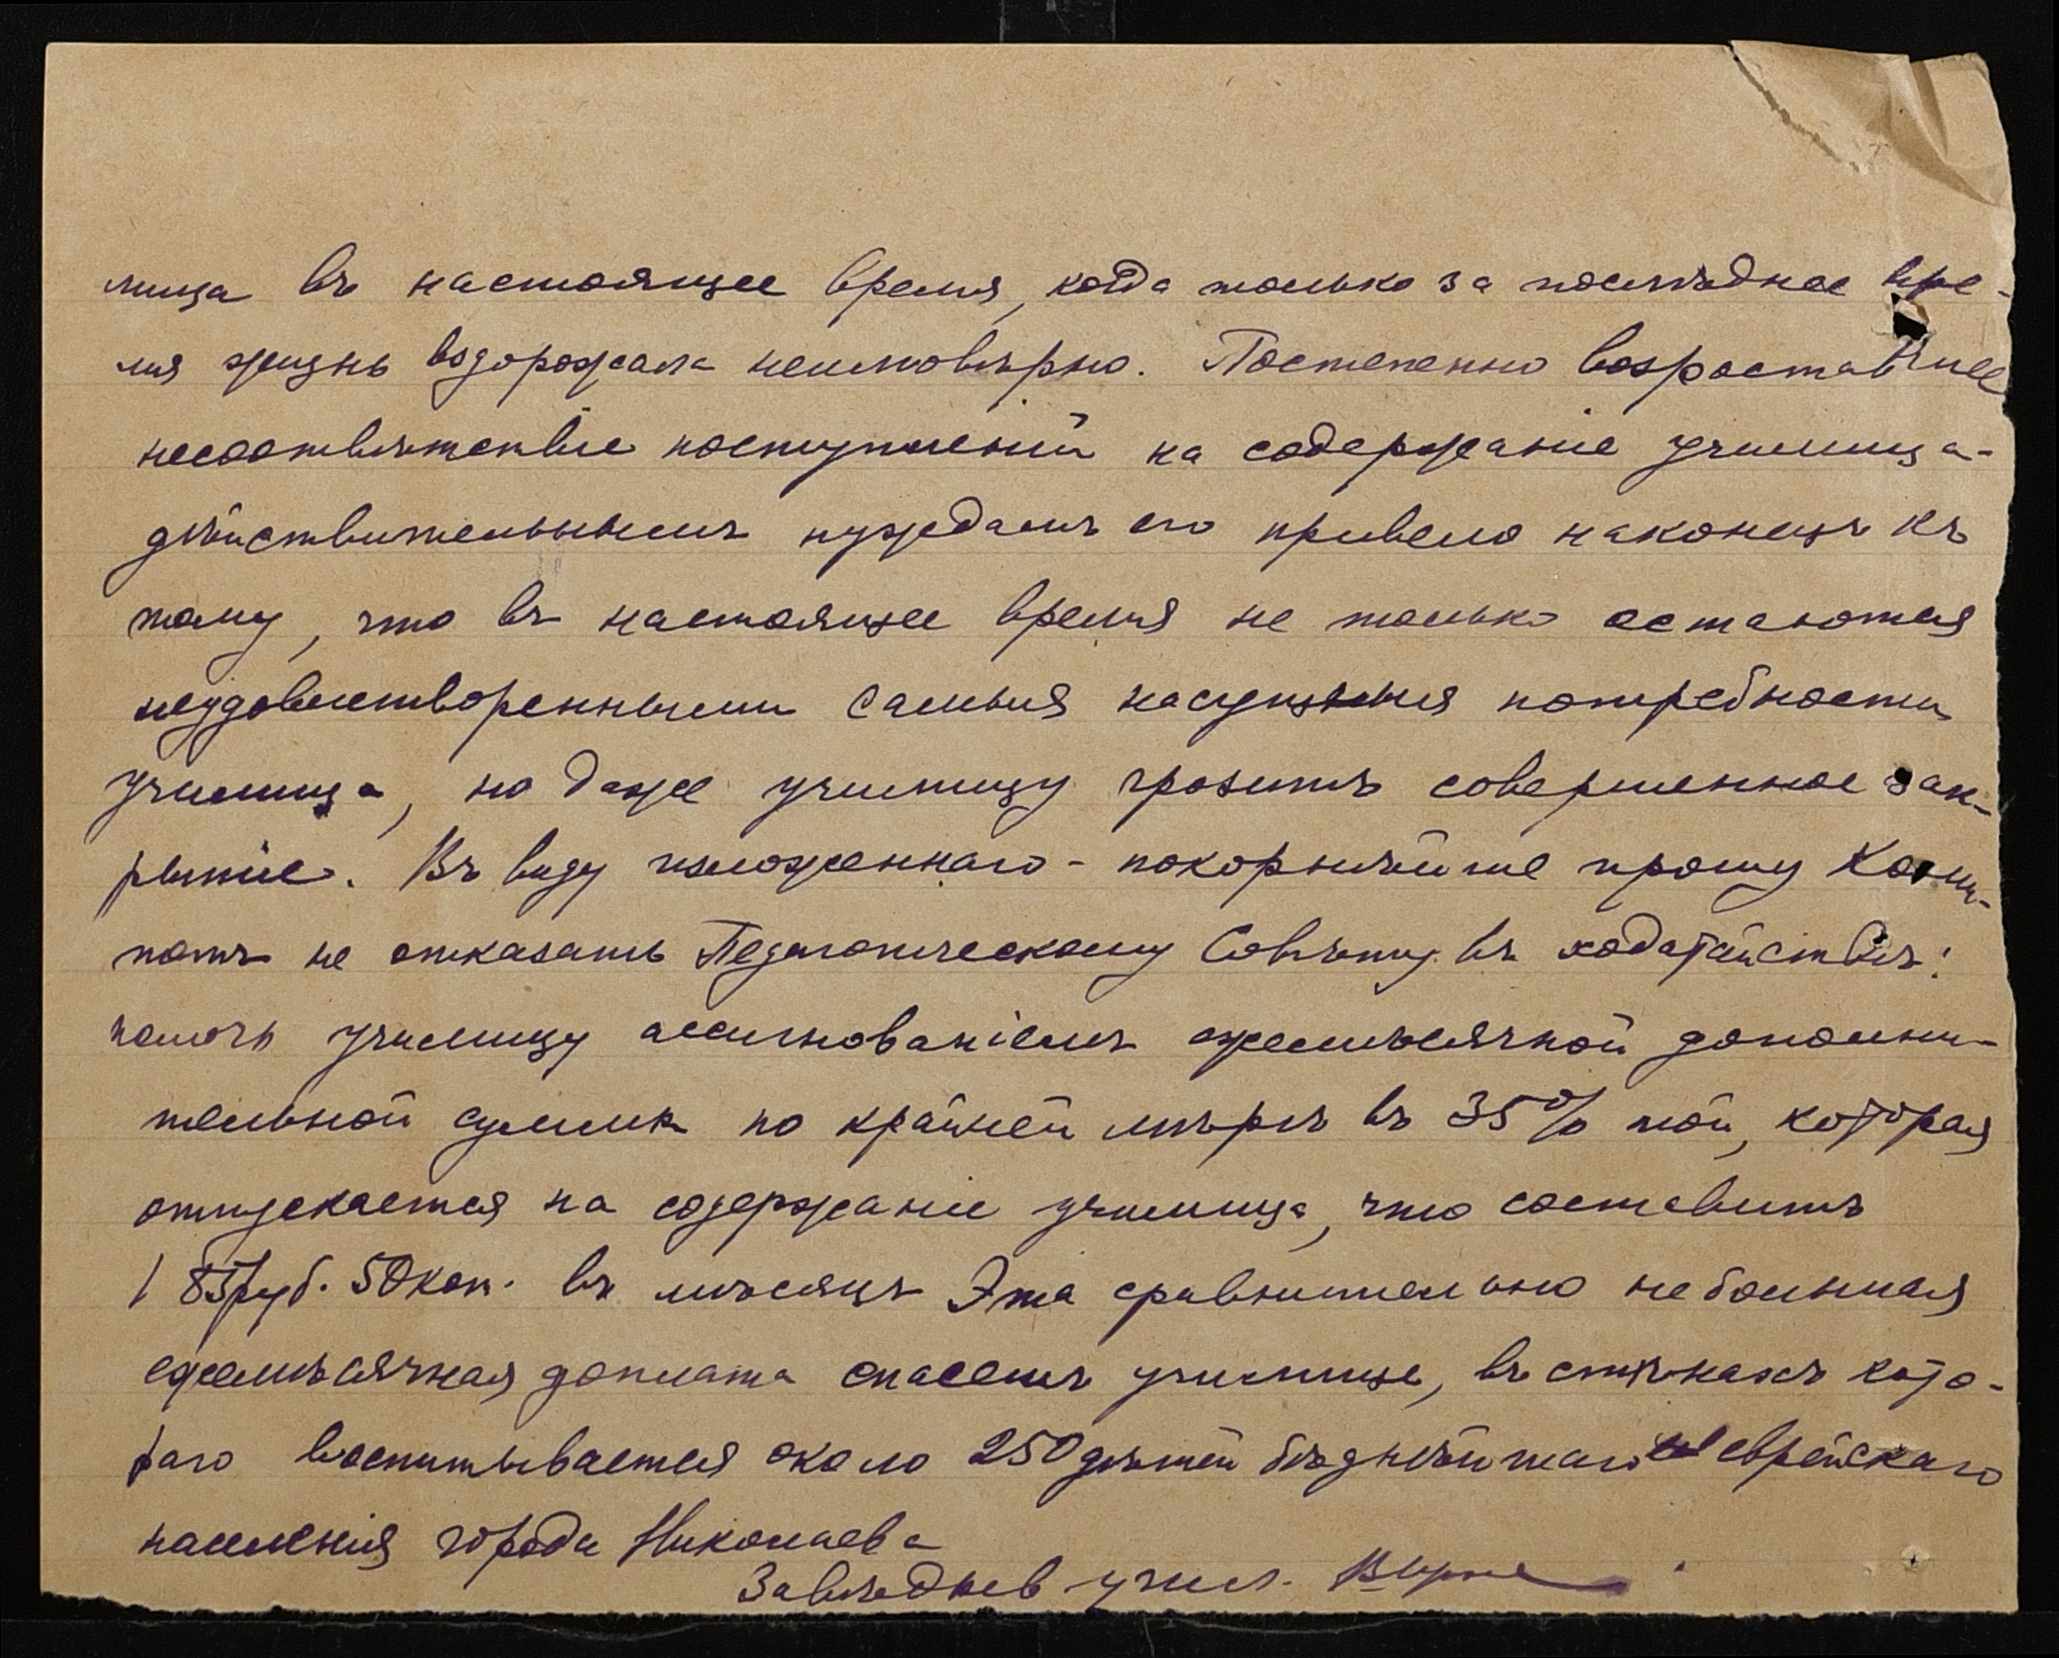 лища въ настоящее время, когда только за последнее вре-
мя жизнь вздорожала неимовѣрно. Постепенно возроставшее
несоотвѣтствіе поступленій на содержаніе училища-
дѣйствительнымъ нуждамъ его привело наконецъ къ
тому, что въ настоящее время не только остаются
неудовлетворенными самыя насущныя потребности
училища, но даже училищу грозитъ совершенное зак-
рытіе. Въ виду изложеннаго - покорнѣйше прошу Коми-
тетъ не отказать Педагогическому Совѣту въ ходатайствѣ:
помочь училищу ассигнованіемъ ежемѣсячной дополни-
тельной суммы по крайней мѣрѣ въ 35% той, которая
отпускается на содержаніе училища, что составитъ
183 руб. 50 коп. въ мѣсяцъ Эта сравнительно небольшая
ежемѣсячная доплата спасетъ училище, въ стѣнахъ кото-
раго воспитывается около 250 дѣтей бѣднѣйшаго еврейскаго
населенія города Николаева
Завѣдыв учил.